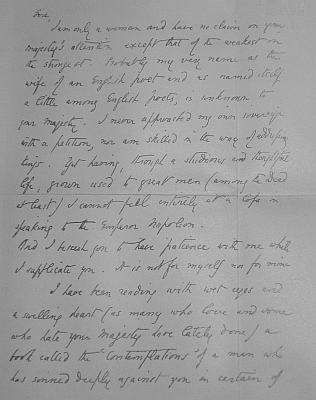 Sire,
I am only a woman and have no claim on your
Majesty's attention except that of the weakest on
the strongest. Probably my very name as the
wife of an English poet and as named itself
a little among English poets, is unknown to
your Majesty. I never approached my own sovereign
with a petition, nor am skilled in the way of addressing
kings. Yet having, through a studious and thoughtful
life, grown used to great men (among the Dead
at least) I cannot feel entirely at a loss in
speaking to the Emperor Napoleon.
And I beseech you to have patience with me while
I supplicate you. It is not for myself nor for mine
I have been reading with wet eyes and
a swelling heart (as many who love and some
who hate your Majesty have lately done) a
book called the 'Contemplations' of a man who
has sinned deeply against you in certain of